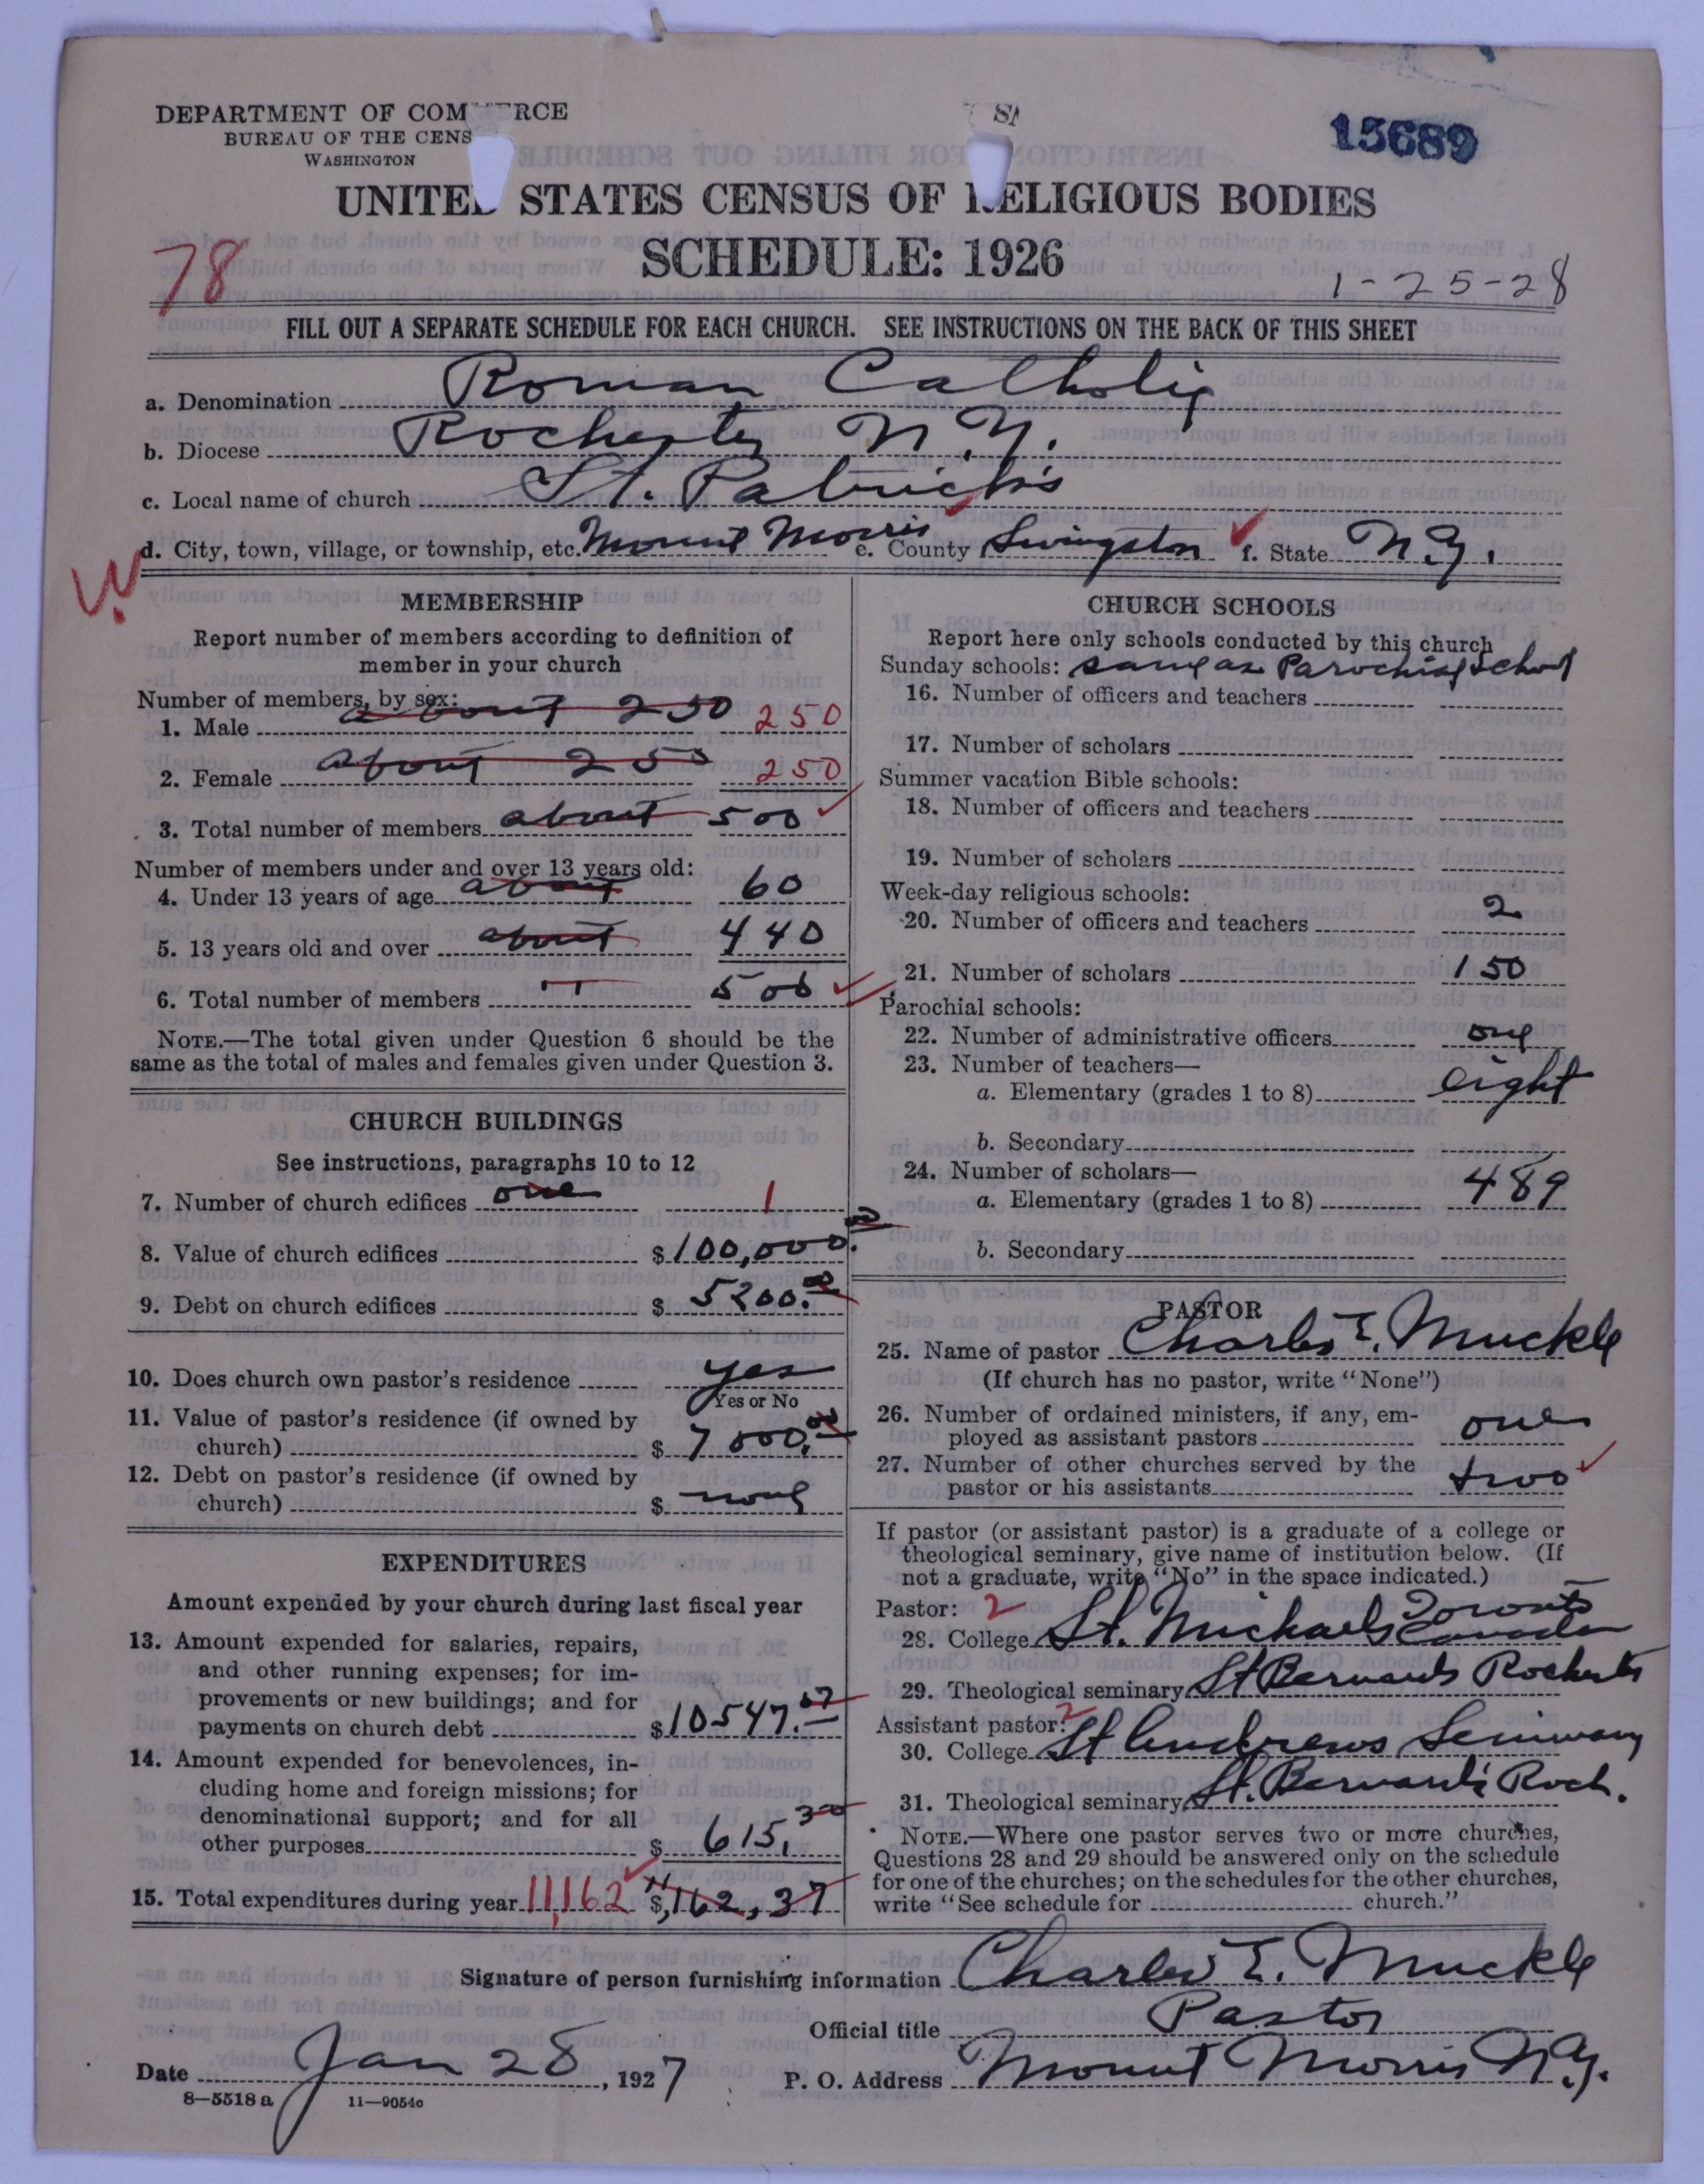 DEPARTMENT OF COM RCE
BUREAU OF THE CENS
WASHINGTON
15689
UNITED STATES CENSUS OF RELIGIOUS BODIES
78
SCHEDULE: 1926
1-25-28
FILL OUT A SEPARATE SCHEDULE FOR EACH CHURCH. SEE INSTRUCTIONS ON THE BACK OF THIS SHEET
a. Denomination Roman Catholic
b. Diocese Rochester N.Y.
c. Local name of church St. Patrick's
d. City, town, village, or township, etc. Mount Morris e. County Livingston f. State N.Y.
MEMBERSHIP
Report number of members according to definition of
member in your church
Number of members, by sex:
1. Male about 250 250
2. Female about 250 250
3. Total number of members about 500
Number of members under and over 13 years old:
4. Under 13 years of age about 60
5. 13 years old and over about 440
6. Total number of members " 500
NOTE.—The total given under Question 6 should be the
same as the total of males and females given under Question 3.
CHURCH BUILDINGS
See instructions, paragraphs 10 to 12
7. Number of church edifices one 1
8. Value of church edifices $100,000.00
9. Debt on church edifices $ 5200.00
10. Does church own pastor's residence yes
Yes or No
11. Value of pastor's residence (if owned by
church) $ 7000.00
12. Debt on pastor's residence (if owned by
church) $ none
EXPENDITURES
Amount expended by your church during last fiscal year
13. Amount expended for salaries, repairs,
and other running expenses; for im-
provements or new buildings; and for
payments on church debt $10547.07
14. Amount expended for benevolences, in-
cluding home and foreign missions; for
denominational support; and for all
other purposes $ 615.30
15. Total expenditures during year 11,162 $11,162,37
CHURCH SCHOOLS
Report here only schools conducted by this church
Sunday schools: same as Parochial School
16. Number of officers and teachers
17. Number of scholars
Summer vacation Bible schools:
18. Number of officers and teachers
19. Number of scholars
Week-day religious schools:
20. Number of officers and teachers 2
21. Number of scholars 150
Parochial schools:
22. Number of administrative officers one
23. Number of teachers—
a. Elementary (grades 1 to 8) eight
b. Secondary
24. Number of scholars—
a. Elementary (grades 1 to 8) 489
b. Secondary
PASTOR
25. Name of pastor Charles E. Muckle
(If church has no pastor, write "None")
26. Number of ordained ministers, if any, em-
ployed as assistant pastors one
27. Number of other churches served by the
pastor or his assistants two
If pastor (or assistant pastor) is a graduate of a college or
theological seminary, give name of institution below. (If
not a graduate, write "No" in the space indicated.)
Pastor: 2
28. College St. Michaels Toronto Canada
29. Theological seminary St Bernards Rochester
Assistant pastor: 2
30. College St Andrews Seminary
31. Theological seminary St. Bernard's Roch.
NOTE.—Where one pastor serves two or more churches,
Questions 28 and 29 should be answered only on the schedule
for one of the churches; on the schedules for the other churches,
write "See schedule for church."
Signature of person furnishing information Charles E. Muckle
Official title Pastor
Date Jan 28, 1927 P. O. Address Mount Morris N.Y.
8—5518 a 11—9054c